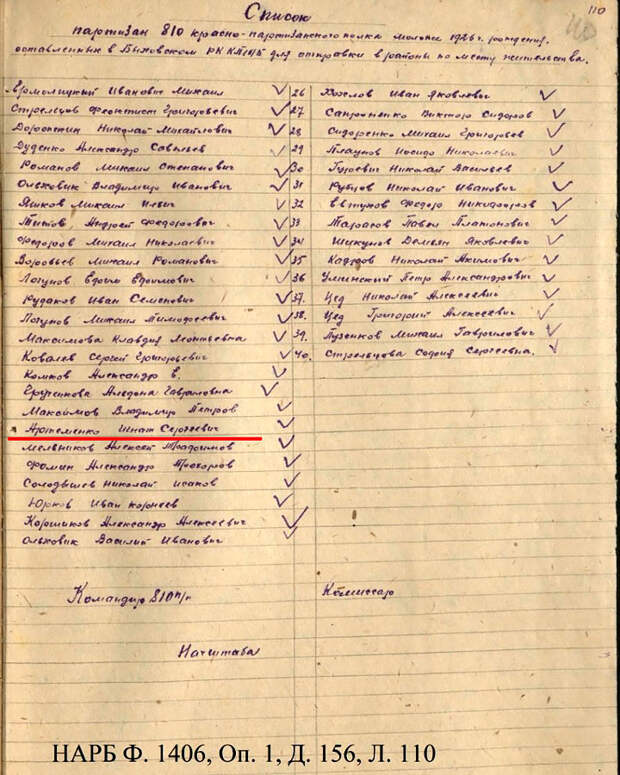 110
Список
партизан 810 красно-партизанского полка моложе 1926 г. рождения,
оставленных в Быховском РК КП(б)Б для отправки в районы по месту жительства.
Ярмолицкий Иванович Михаил
Стрельцов Феоктист Григорьевич
Дороткин Николай Михайлович
Дуденко Александр Савельев
Романов Михаил Степанович
Ольховик Владимир Иванович
Яшков Михаил
Титов Андрей Федорович
Федоров Михаил Николаевич
Воробьев Михаил Романович
Логунов Ефим Ефимович
Рудаков Иван Семенович
Логунов Михаил Тимофеевич
Максимова Клавдия Леонтьевна
Ковалев Сергей Григорьевич
Комков Александр Е.
Гавриловна
Максимов Владимир Петров
Артеменко Игнат Сергеевич
Мельников Алексей Трофимов
Фомин Александр Прохоров
Солодышев Николай Исаков
Юрков Иван Корнеев
Коршиков Александр Алексеевич
Ольховик Василий Иванович
26 Козлов Иван Яковлевич
27 Сапроненко Виктор Сидоров
28 Сидоренко Михаил Григорьев
29 Плацунов Николаевич
30 Гуревич Николай Васильев
31 Кубцов Николай Иванович
32 Евтухов Федор Никифоров
33 Тарасов Павел Платонович
34 Шукунов Демьян Яковлевич
35 Кадуров Николай Акимович
36 Уминский Петр Александрович
37. Цед Николай Алексеевич
38. Цед Григорий Алексеевич
39. Пузенков Михаил Гаврилович
40. Стрельцова София Сергеевна.
Командир 810 п/п
Комиссар
Начштаба
НАРБ Ф. 1406, Оп. 1, Д. 156, Л. 110